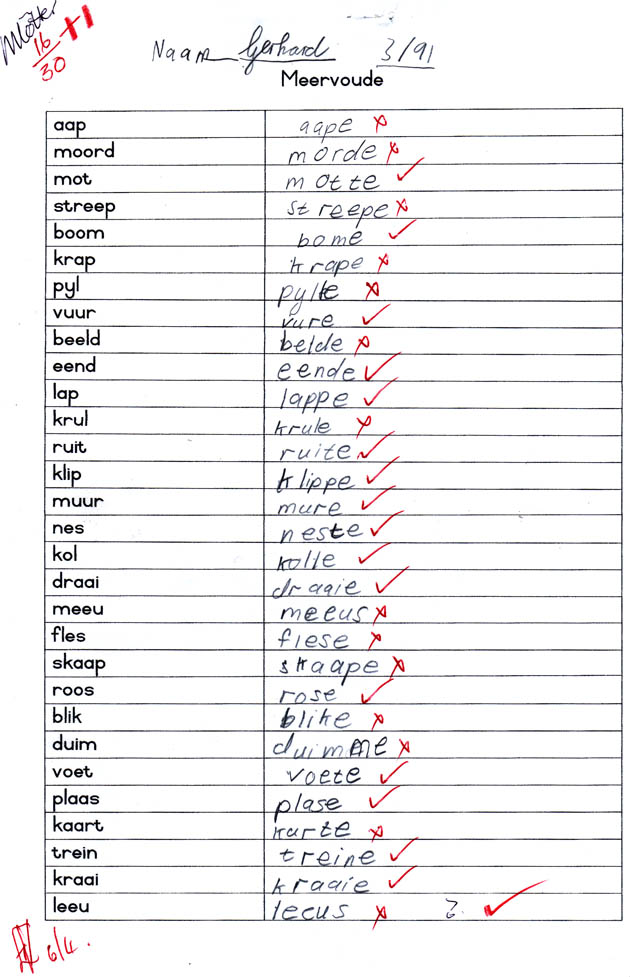 16
30
+1
Naam Gerhard 3/91
Meervoude
aap aape
moord morde
mot motte
streep streepe
boom bome
krap krape
pyl pylle
vuur vure
beeld belde
eend eende
lap lappe
krul krule
ruit ruite
klip klippe
muur mure
nes neste
kol kolle
draai draaie
meeu meeus
fles flese
skaap skaape
roos rose
blik blike
duim duimme
voet voete
plaas plase
kaart karte
trein treine
kraai kraaie
leeu leeus ?
6/4.